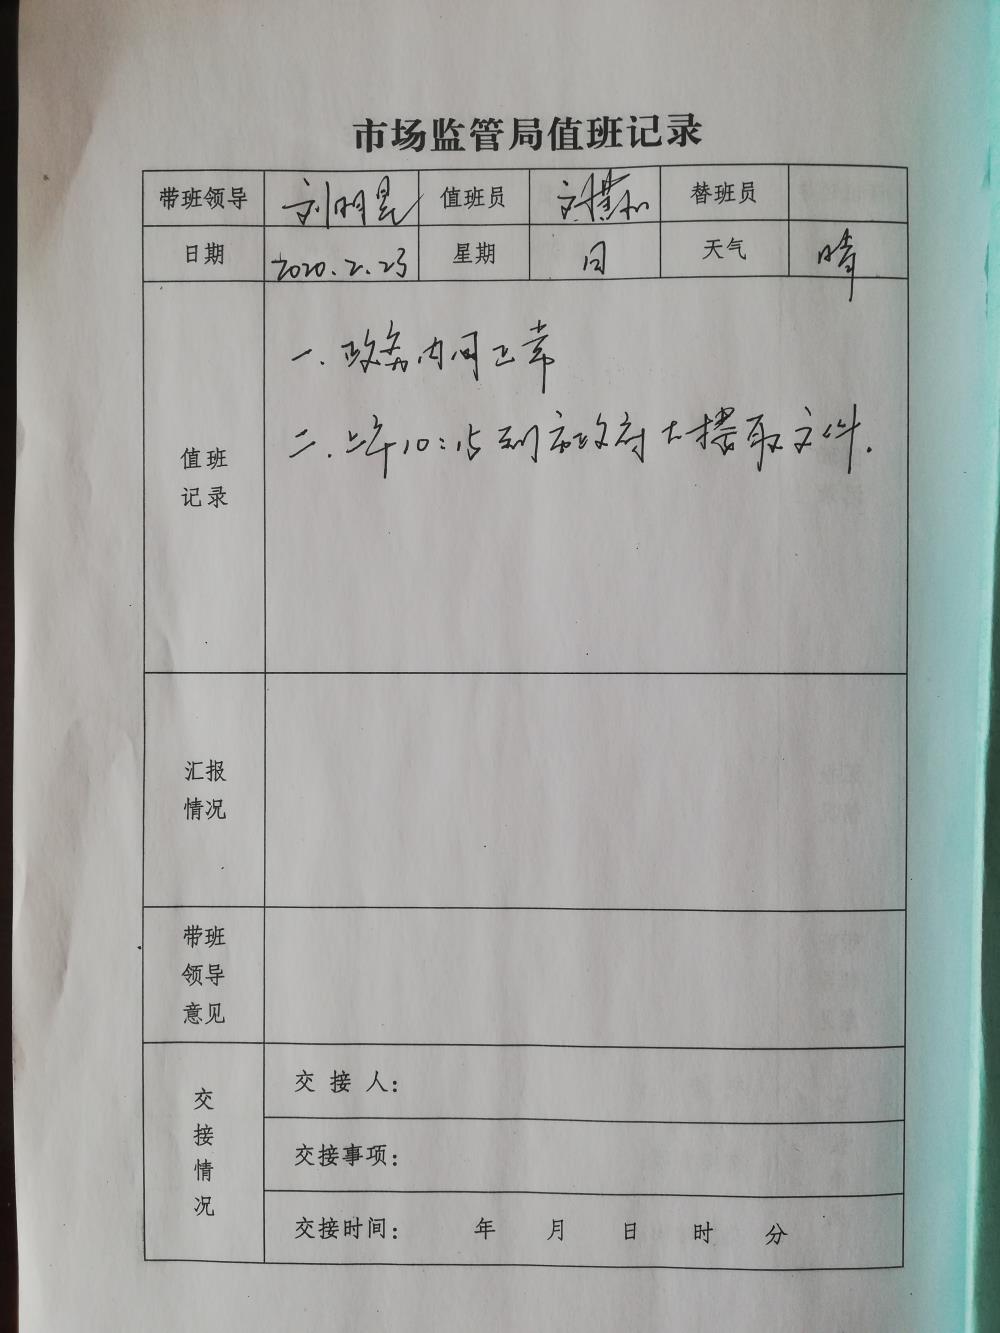 市场监管局值班记录
带班领导 刘明昆 值班员 替班员
日期 2020.2.23 星期 日 天气 晴
值班记录
一.政务内网正常
二.上午10:15到市政府大楼取文件.
汇报情况
带班领导意见
交接情况
交接人:
交接事项:
交接时间: 年 月 日 时 分